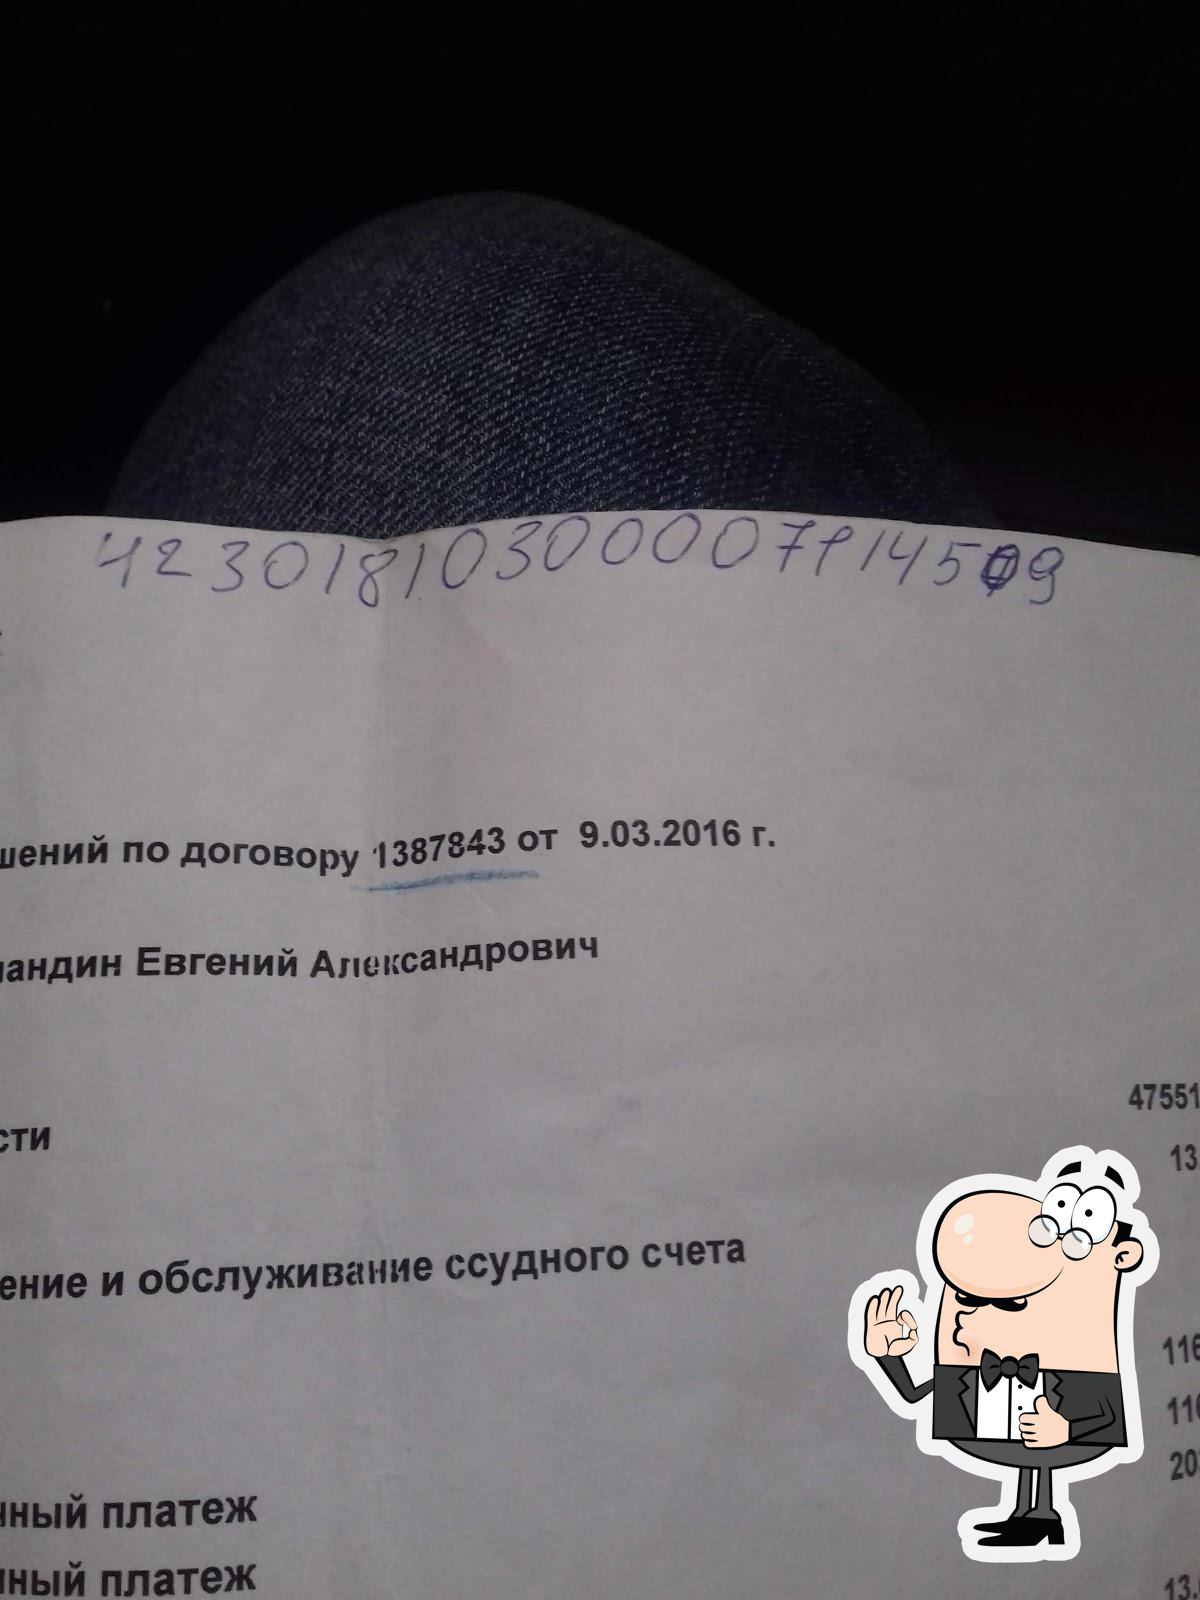 шений по договору 1387843 от 9.03.2016 г.
андин Евгений Александрович
47551
сти
13
ение и обслуживание ссудного счета
116
116
20
чный платеж
чный платеж
13.